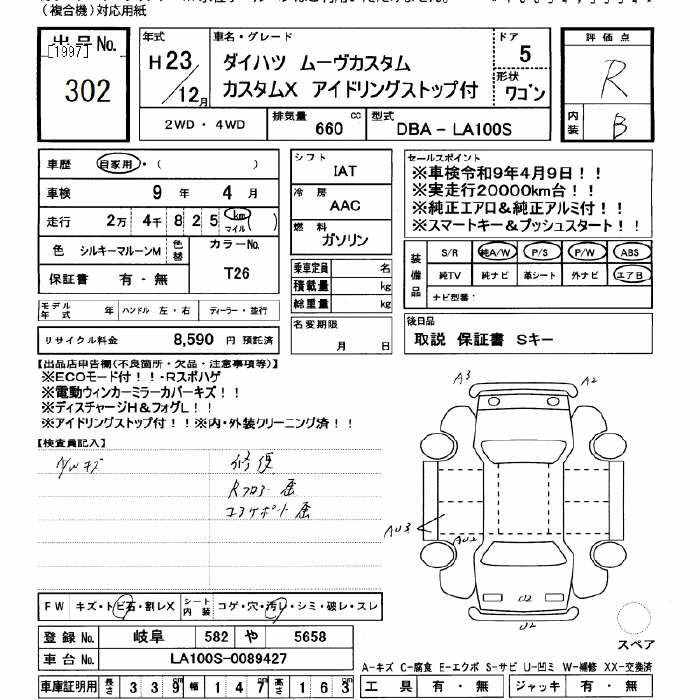 (複合機)対応用紙
出品No.
[1997]
302
年式
H23/12月
車名・グレード
ダイハツ ムーヴカスタム
カスタムX アイドリングストップ付
ドア
5
形状
ワゴン
評価点
R
内装
B
2WD・4WD
排気量
660 cc
型式
DBA-LA100S
車歴 自家用・( )
車検 9年 4月
走行 2万 4千 8 2 5 km マイル ( )
色 シルキーマルーンM 色替
カラーNo.
T26
保証書 有・無
シフト
IAT
冷房
AAC
燃料
ガソリン
セールスポイント
※車検令和9年4月9日!!
※実走行20000km台!!
※純正エアロ&純正アルミ付!!
※スマートキー&プッシュスタート!!
乗車定員 名
積載量 kg
総重量 kg
装備品
S/R 純A/W P/S P/W ABS
純TV 純ナビ 革シート 外ナビ エアB
ナビ型番:
モデル年式 年 ハンドル 左・右 ディーラー・並行
リサイクル料金 8,590 円 預託済
名変期限
月 日
後日品
取説 保証書 Sキー
【出品店申告欄(不良箇所・欠品・注意事項等)】
※ECOモード付!!-Rスポハゲ
※電動ウィンカーミラーカバーキズ!!
※ディスチャージH&フォグL!!
※アイドリングストップ付!!※内・外装クリーニング済!!
【検査員記入】
A/Wキズ
修復
Rフロアー歪
コアサポート歪
A3
A2
AU3
AU2
U2
U2
FW キズ・トビ石・割レX
シート内装 コゲ・穴・汚レ・シミ・破レ・スレ
スペア
登録No. 岐阜 582 や 5658
車台No. LA100S-0089427
A-キズ C-腐食 E-エクボ S-サビ U-凹ミ W-補修 XX-交換済
車庫証明用 長さ 339cm 幅 147cm 高さ 163cm
工具 有・無 ジャッキ 有・無